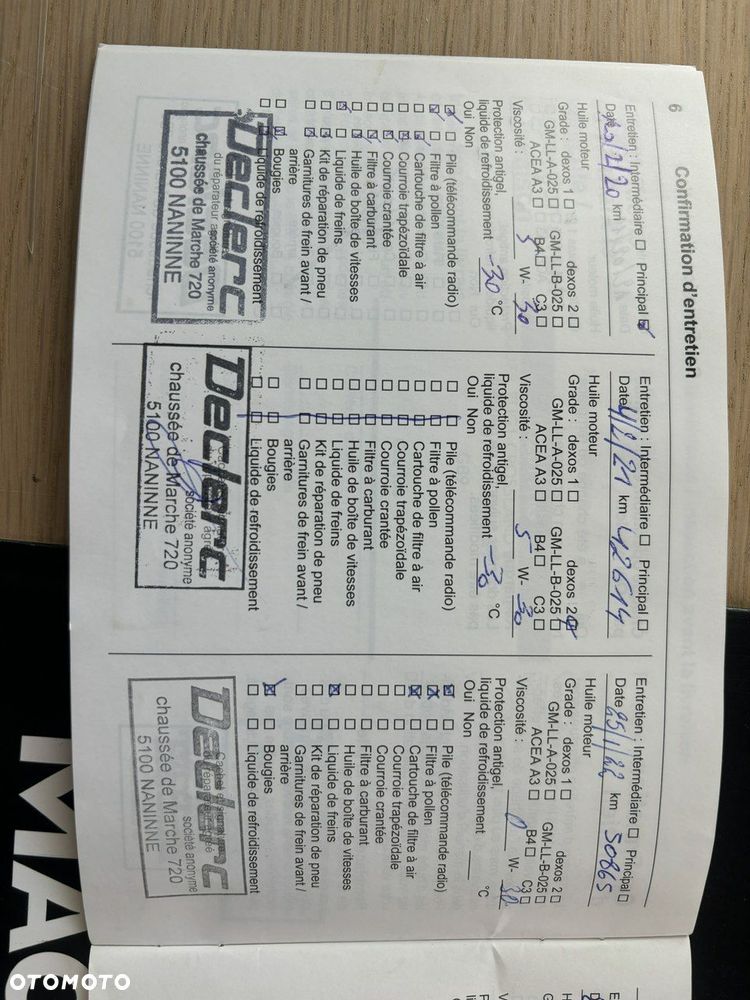 6
Confirmation d'entretien
Entretien : Intermédiaire ☐ Principal ☑
Date /2/20 km
Huile moteur
Grade : dexos 1 ☐ dexos 2 ☐
GM-LL-A-025 ☐ GM-LL-B-025 ☐
ACEA A3 ☐ B4 ☐ C3 ☐
Viscosité : 5 W- 30
Protection antigel,
liquide de refroidissement -30 °C
Oui Non
Pile (télécommande radio)
Filtre à pollen
Cartouche de filtre à air
Courroie trapézoïdale
Courroie crantée
Filtre à carburant
Huile de boîte de vitesses
Liquide de freins
Kit de réparation de pneu
Garnitures de frein avant /
arrière
Bougies
Liquide de refroidissement
Declerc
du réparateur agréé
société anonyme
chaussée de Marche 720
5100 NANINNE
Entretien : Intermédiaire ☐ Principal ☐
Date 4/2/21 km 42614
Huile moteur
Grade : dexos 1 ☐ dexos 2 ☑
GM-LL-A-025 ☐ GM-LL-B-025 ☐
ACEA A3 ☐ B4 ☐ C3 ☐
Viscosité : 5 W- 30
Protection antigel,
liquide de refroidissement -30 °C
Oui Non
Pile (télécommande radio)
Filtre à pollen
Cartouche de filtre à air
Courroie trapézoïdale
Courroie crantée
Filtre à carburant
Huile de boîte de vitesses
Liquide de freins
Kit de réparation de pneu
Garnitures de frein avant /
arrière
Bougies
Liquide de refroidissement
Declerc
société anonyme
chaussée de Marche 720
5100 NANINNE
Entretien : Intermédiaire ☐ Principal ☐
Date 25/1/22 km 50865
Huile moteur
Grade : dexos 1 ☐ dexos 2 ☐
GM-LL-A-025 ☐ GM-LL-B-025 ☐
ACEA A3 ☐ B4 ☐ C3 ☐
Viscosité : 0 W- 30
Protection antigel,
liquide de refroidissement °C
Oui Non
Pile (télécommande radio)
Filtre à pollen
Cartouche de filtre à air
Courroie trapézoïdale
Courroie crantée
Filtre à carburant
Huile de boîte de vitesses
Liquide de freins
Kit de réparation de pneu
Garnitures de frein avant /
arrière
Bougies
Liquide de refroidissement
Declerc
société anonyme
chaussée de Marche 720
5100 NANINNE
MAG
OTOMOTO